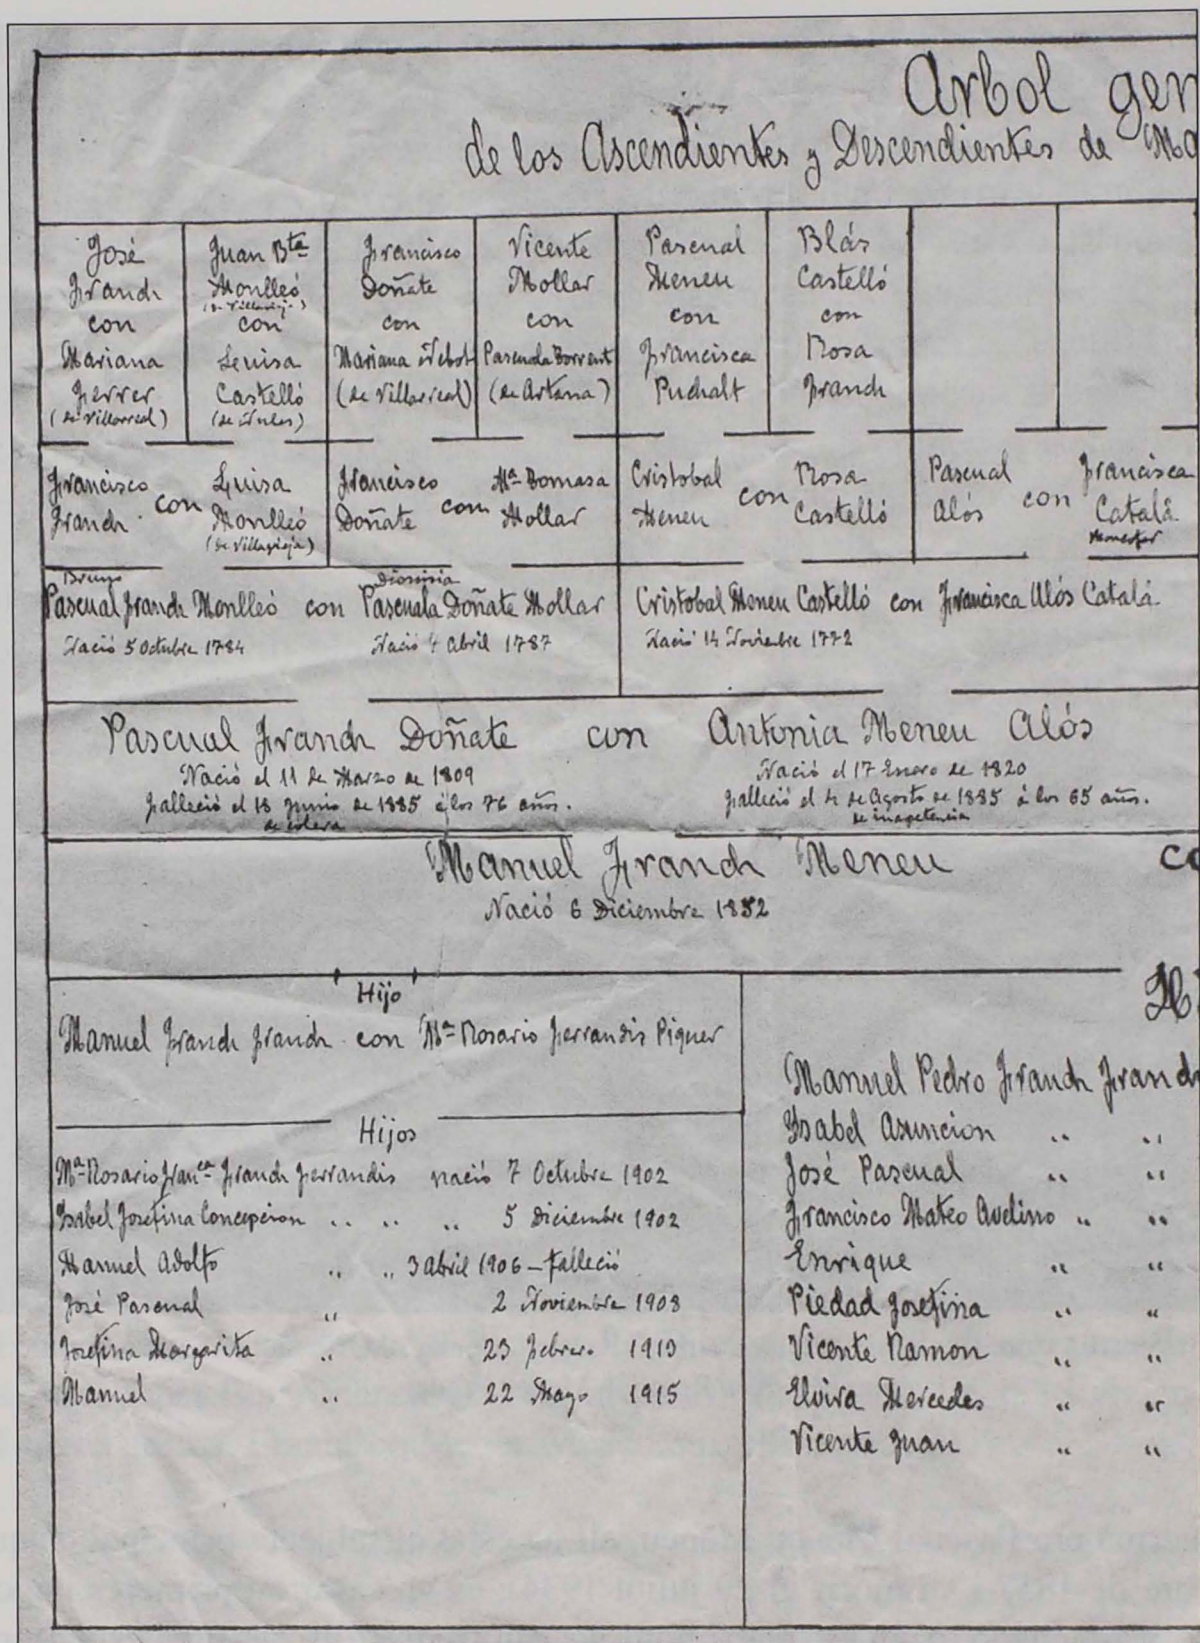 Arbol gen
de los Ascendientes y Descendientes de Ma
José
Franch
con
Mariana
Ferrer
(de Villarreal)
Juan Bta
Monlleó
(de Villavieja)
con
Luisa
Castelló
(de Nules)
Francisco
Doñate
con
Mariana Nebot
(de Villarreal)
Vicente
Mollar
con
Pascuala Torrent
(de Artana)
Pascual
Meneu
con
Francisca
Puchalt
Blás
Castelló
con
Rosa
Franch
Francisco
Franch
con
Luisa
Monlleó
(de Villavieja)
Francisco
Doñate
con
Mª Tomasa
Mollar
Cristobal
Meneu
con
Rosa
Castelló
Pascual
Alós
con
Francisca
Catalá
Bruno
Pascual Franch Monlleó con
Nació 5 Octubre 1784
Dionisia
Pascuala Doñate Mollar
Nació 4 Abril 1787
Cristobal Meneu Castelló con Francisca Alós Catalá
Nació 14 Noviembre 1772
Pascual Franch Doñate con Antonia Meneu Alós
Nació el 11 de Marzo de 1809
Falleció el 18 Junio de 1885 á los 76 años.
de colera
Nació el 17 Enero de 1820
Falleció el 4 de Agosto de 1885 á los 65 años.
de inapetencia
Manuel Franch Meneu co
Nació 6 Diciembre 1852
Hijo
Manuel Franch Franch con Mª Rosario Ferrandis Piquer
Hijos
Mª Rosario Franca Franch Ferrandis nació 7 Octubre 1902
Isabel Josefina Concepcion " " " 5 Diciembre 1902
Manuel Adolfo " " 3 Abril 1906 – Falleció
José Pascual " 2 Noviembre 1908
Josefina Margarita " 23 Febrero 1913
Manuel " 22 Mayo 1915
Hi
Manuel Pedro Franch Franch
Isabel Asuncion " "
José Pascual " "
Francisco Mateo Avelino " "
Enrique " "
Piedad Josefina " "
Vicente Ramon " "
Elvira Mercedes " "
Vicente Juan " "